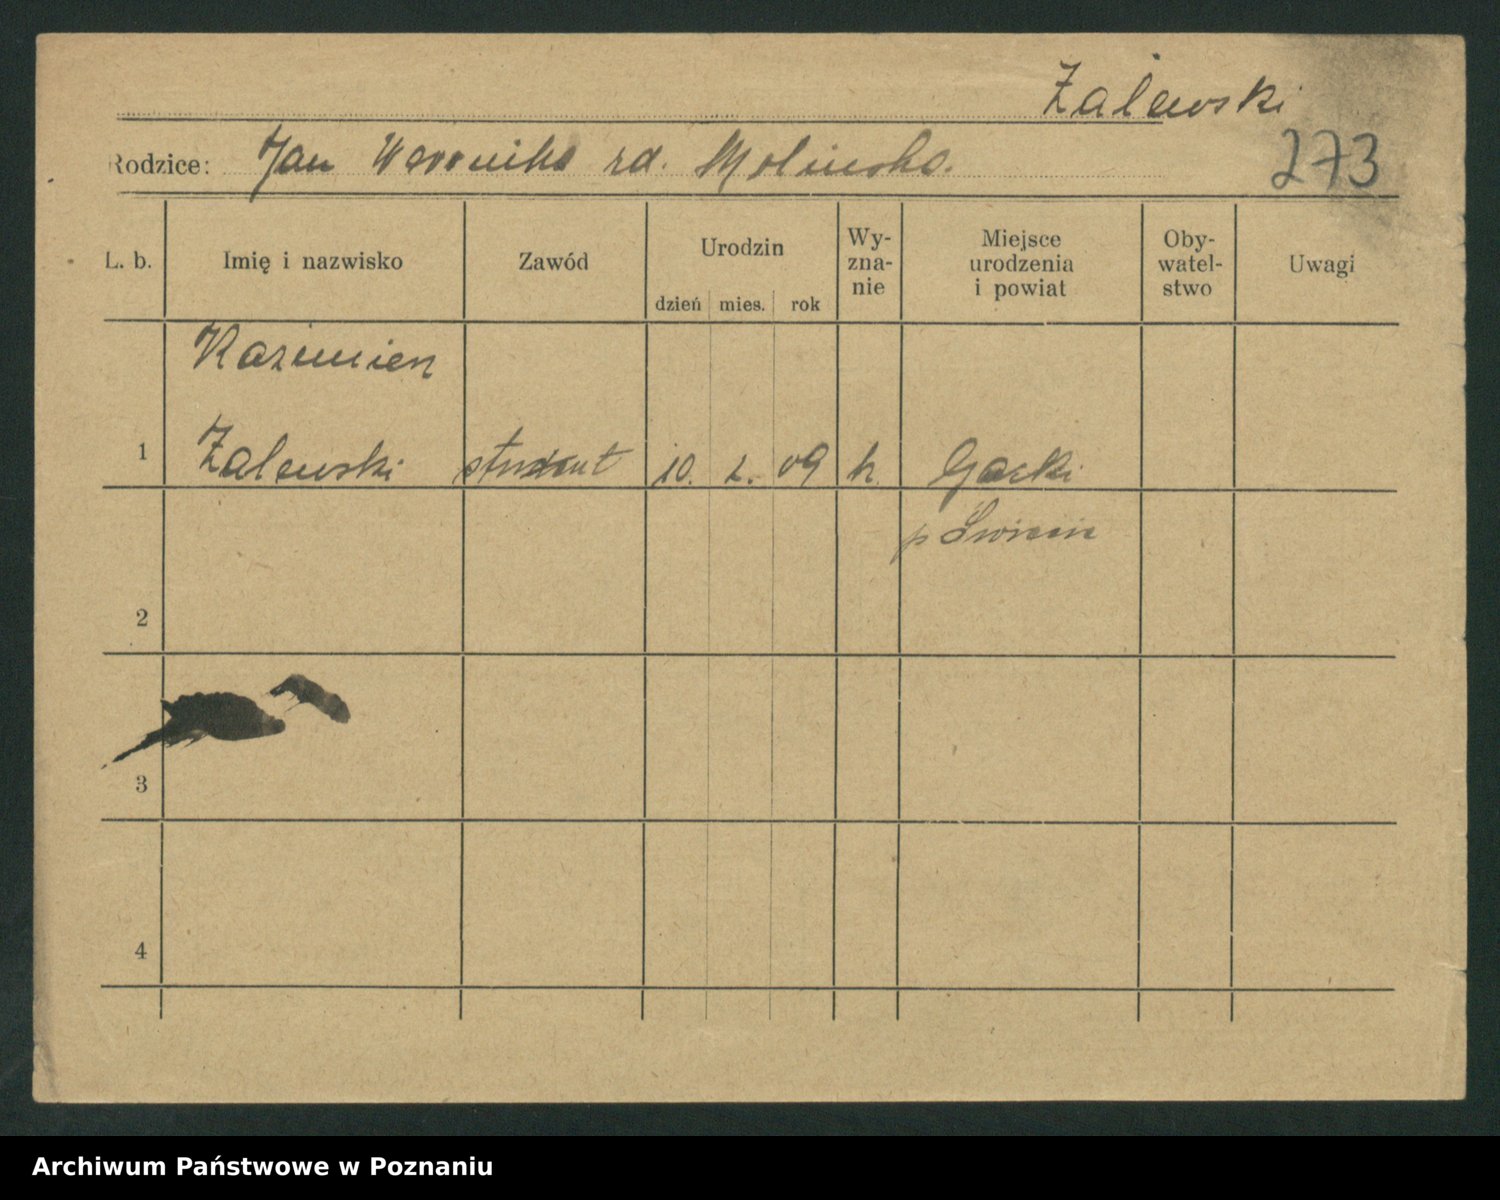 Zalewski
Rodzice: Jan Weronika rd. Molinska.
273
L. b. Imię i nazwisko Zawód Urodzin dzień mies. rok Wy-zna-nie Miejsce urodzenia i powiat Oby-watel-stwo Uwagi
Kazimierz
1 Zalewski student 10. 2. 09 k. Gacki
p Świecie
2
3
4
Archiwum Państwowe w Poznaniu